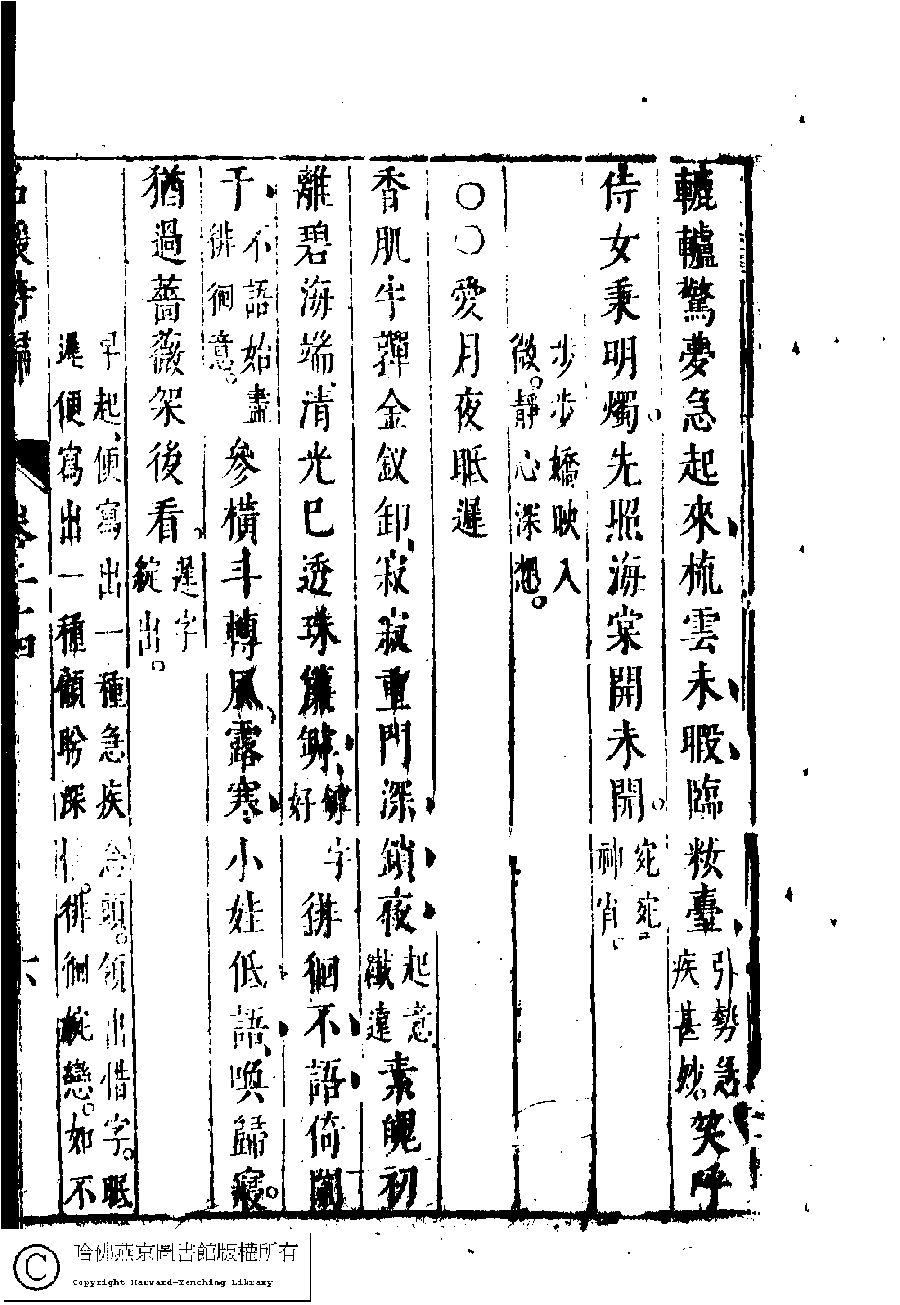 轆轤驚夢急起來梳雲未暇臨妝臺引勢急疾甚妙笑呼
侍女秉明燭先照海棠開未開宛宛神肖
步步嬌映入微靜心深想
○○愛月夜眠遲
香肌半嚲金釵卸寂寂重門深鎖夜起意纖遠素魄初
離碧海端清光已透珠簾罅罅字好徘徊不語倚闌
干不語始盡徘徊意參橫斗轉風露寒小娃低語喚歸寢
猶過薔薇架後看遲字綻出
早起便寫出一種急疾念頭領出惜字眠
遲便寫出一種顧盼深情徘徊戀如不
名媛詩歸
卷二十四
六
哈佛燕京圖書館版權所有
Copyright Harvard-Yenching Library